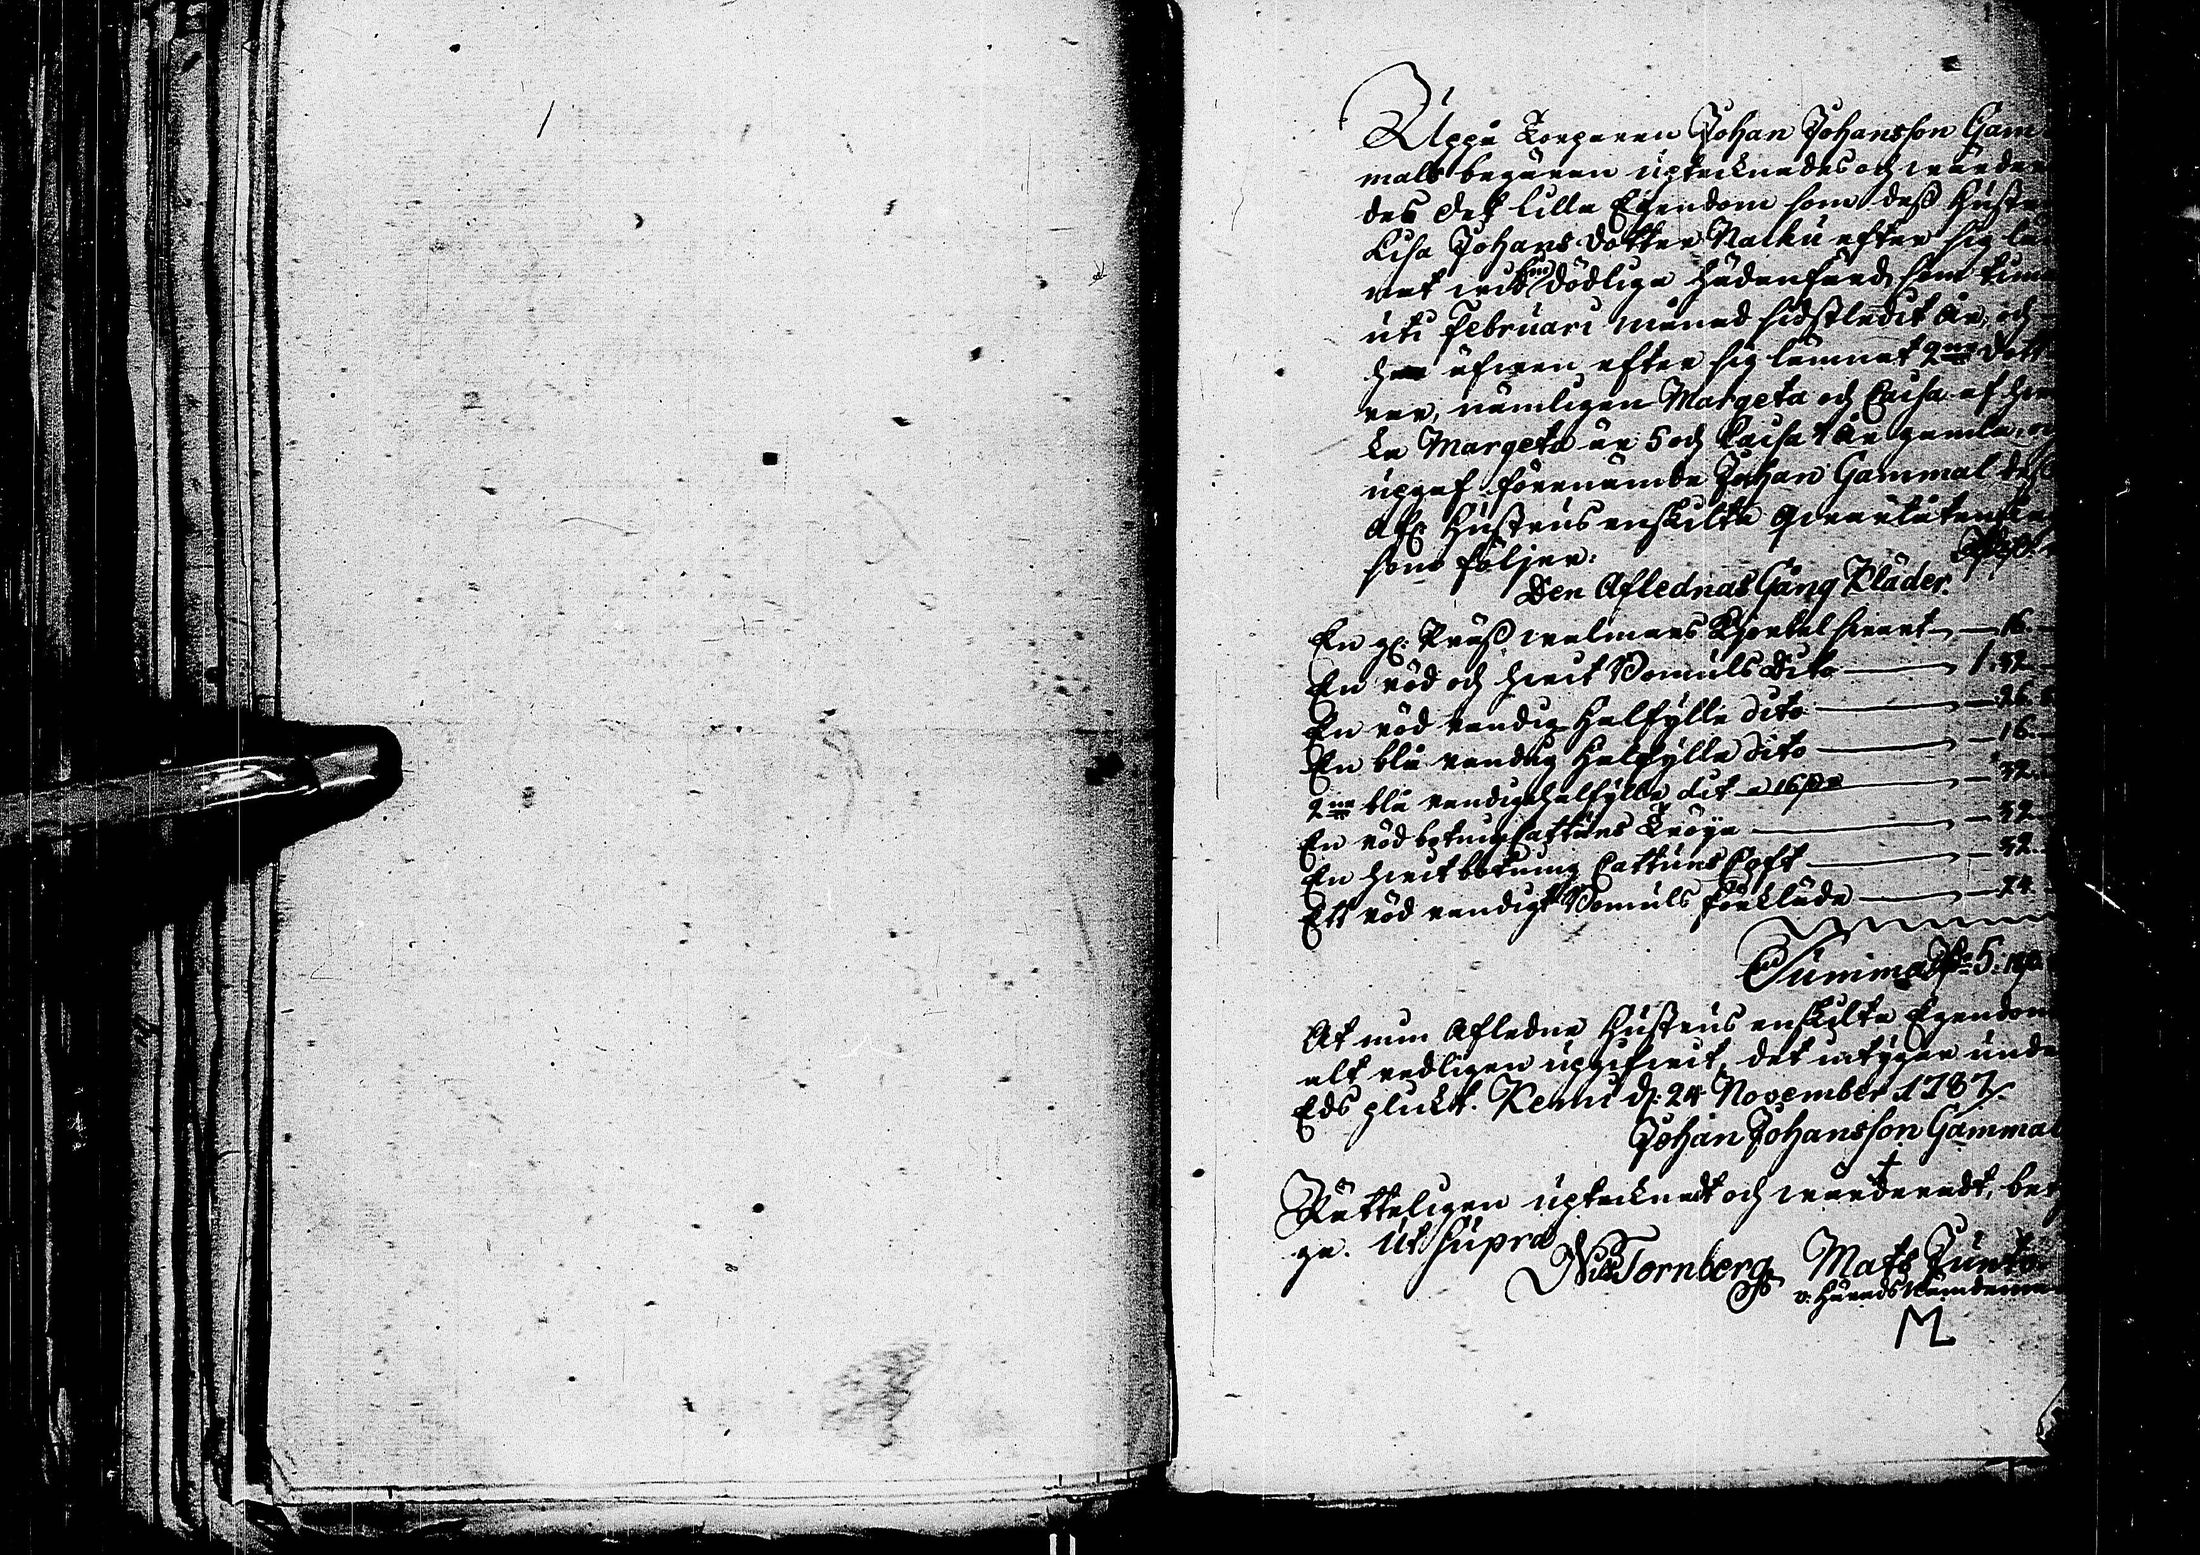 Uppå Torparen Johan Johansson Gam
mals begäran uptecknades och wärder
des det lilla Egendom som dess Hustru
Lisa Johans dotter Nalku efter sig läm
nat wid sin dödliga hädanfärd, som timm
uti Februari månad sidstledit År, och
har äfwen efter sig lämnat 2ne Dött
rar, nämligen Margeta och Caisa af hwil
ka Margeta är 5 och Caisa 4 År gamla, och
upgaf förenämde Johan Gammal dess
Afl. Hustrus enskilta Qwarlåtenskap
som följer:
Den Aflednas Gång Kläder.
En gl. Kräß walmars Kjortel swart — 16.
En röd och hwit Bomuls Dito — 1:32
En röd randig Halfylle dito — 26.
En blå randig Halfylle dito — 16.
2ne blå randige halfylle dit a 16 s — 32.
En röd botnig Cattuns Tröya — 32.
En hwit botning Cattuns Coft — 32.
Ett röd randigt Bomuls Förkläde — 24.
Summa Rd 5:
At min Afledne Hustrus enskilte Egendom
alt redligen upgifwit, det intygar unde
Eds plickt. Kemi d. 24 November 1787.
Johan Johansson Gammal
Rätteligen uptecknadt och wärderadt, bety
ga. Ut Supra
Nils Tornberg Mats Junto
v. Härads Nämdeman
M